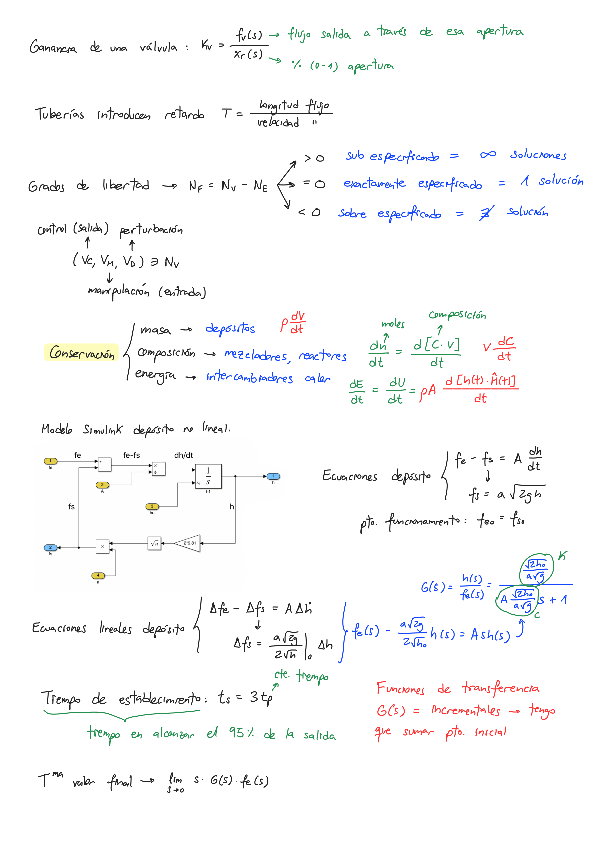 Ganancia de una válvula : Kv = fv(s) / xr(s)
→ flujo salida a través de esa apertura
→ % (0-1) apertura
Tuberías introducen retardo T = longitud flujo / velocidad "
Grados de libertad → NF = NV - NE
> 0 sub especificado = ∞ soluciones
= 0 exactamente especificado = 1 solución
< 0 sobre especificado = ∄ solución
control (salida) perturbación
(VC, VM, VD) ∋ NV
manipulación (entrada)
Conservación
masa → depósitos ρ dV/dt
composición → mezcladores, reactores
energía → intercambiadores calor
moles composición
dn/dt = d[C·V]/dt V dC/dt
dE/dt = dU/dt = ρA d[h(t)·Ĥ(t)]/dt
Modelo Simulink depósito no lineal.
fe fe-fs dh/dt
fs h
Ecuaciones depósito
fe - fs = A dh/dt
fs = a √2gh
pto. funcionamiento : feo = fso
G(s) = h(s)/fe(s) = (√2ho / a√g) / (A √2ho / a√g s + 1)
K
C
Ecuaciones lineales depósito
Δfe - Δfs = A Δḣ
Δfs = a√2g / 2√h |o Δh
fe(s) - a√2g / 2√ho h(s) = A s h(s)
Tiempo de establecimiento : ts = 3 tp
cte. tiempo
tiempo en alcanzar el 95% de la salida
Funciones de transferencia
G(s) = incrementales → tengo
que sumar pto. inicial
Tma valor final → lim s→0 s · G(s) · fe(s)